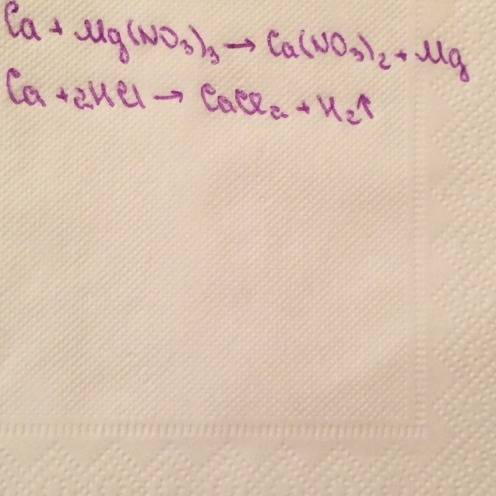 Ca + Mg(NO₃)₃ → Ca(NO₃)₂ + Mg
Ca + 2HCl → CaCl₂ + H₂↑